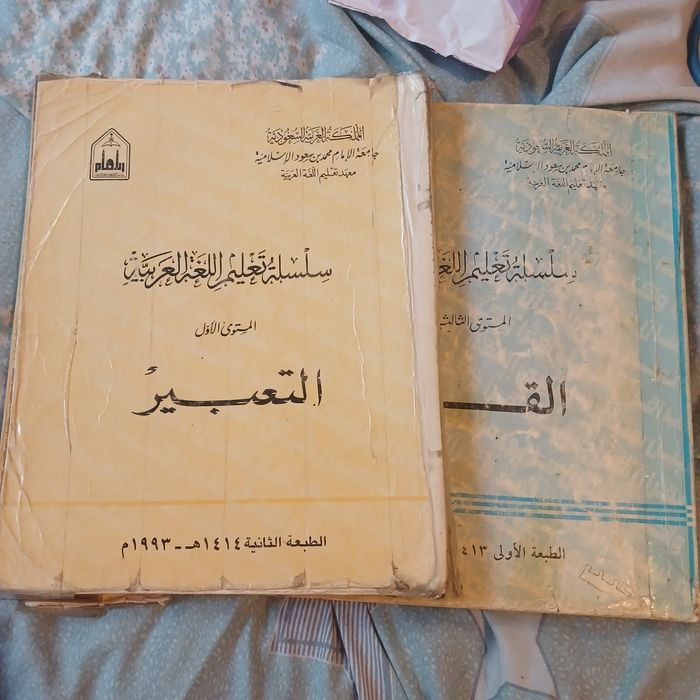 المملكة العربية السعودية
جامعة الإمام محمد بن سعود الإسلامية
معهد تعليم اللغة العربية
سلسلة تعليم اللغة العربية
المستوى الأول
التعبير
الطبعة الثانية ١٤١٤هـ - ١٩٩٣م
المملكة العربية السعودية
جامعة الإمام محمد بن سعود الإسلامية
معهد تعليم اللغة العربية
سلسلة تعليم اللغ
المستوى الثالث
القـ
الطبعة الأولى ٤١٣